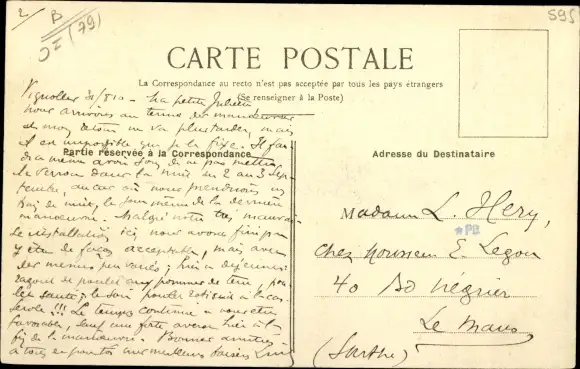 2 B
OI (79)
595
CARTE POSTALE
La Correspondance au recto n'est pas acceptée par tous les pays étrangers
(Se renseigner à la Poste)
Partie réservée à la Correspondance
Adresse du Destinataire
31/8 10 - Ma petite Juliette
nous arrivons au terme des manœuvres
et mon retour ne va plus tarder, mais
il est impossible que je le fixe. Il
de même avoir soin de ne pas mettre
le verrou dans la nuit du 2 au 3 Sep
tembre, au cas où nous prendrions un
train de nuit, le jour même de la dernière
manœuvre. Malgré notre très mauvai-
se installation ici nous avons fini par
y être de façon acceptable, mais avec
des menus peu variés ; hier à déjeuner
ragoût de poulet aux pommes de terre,
le soir poulet rôti à la cas
serole !!! Le temps continue à nous être
favorable, sauf une forte averse hier à la
fin de la manœuvre. Bonnes amitiés
à tous et pour toi mes meilleurs baisers
Madame L. Hery,
PB
Chez Monsieur E. Legou
40 Bd Négrier
Le Mans
(Sarthe)